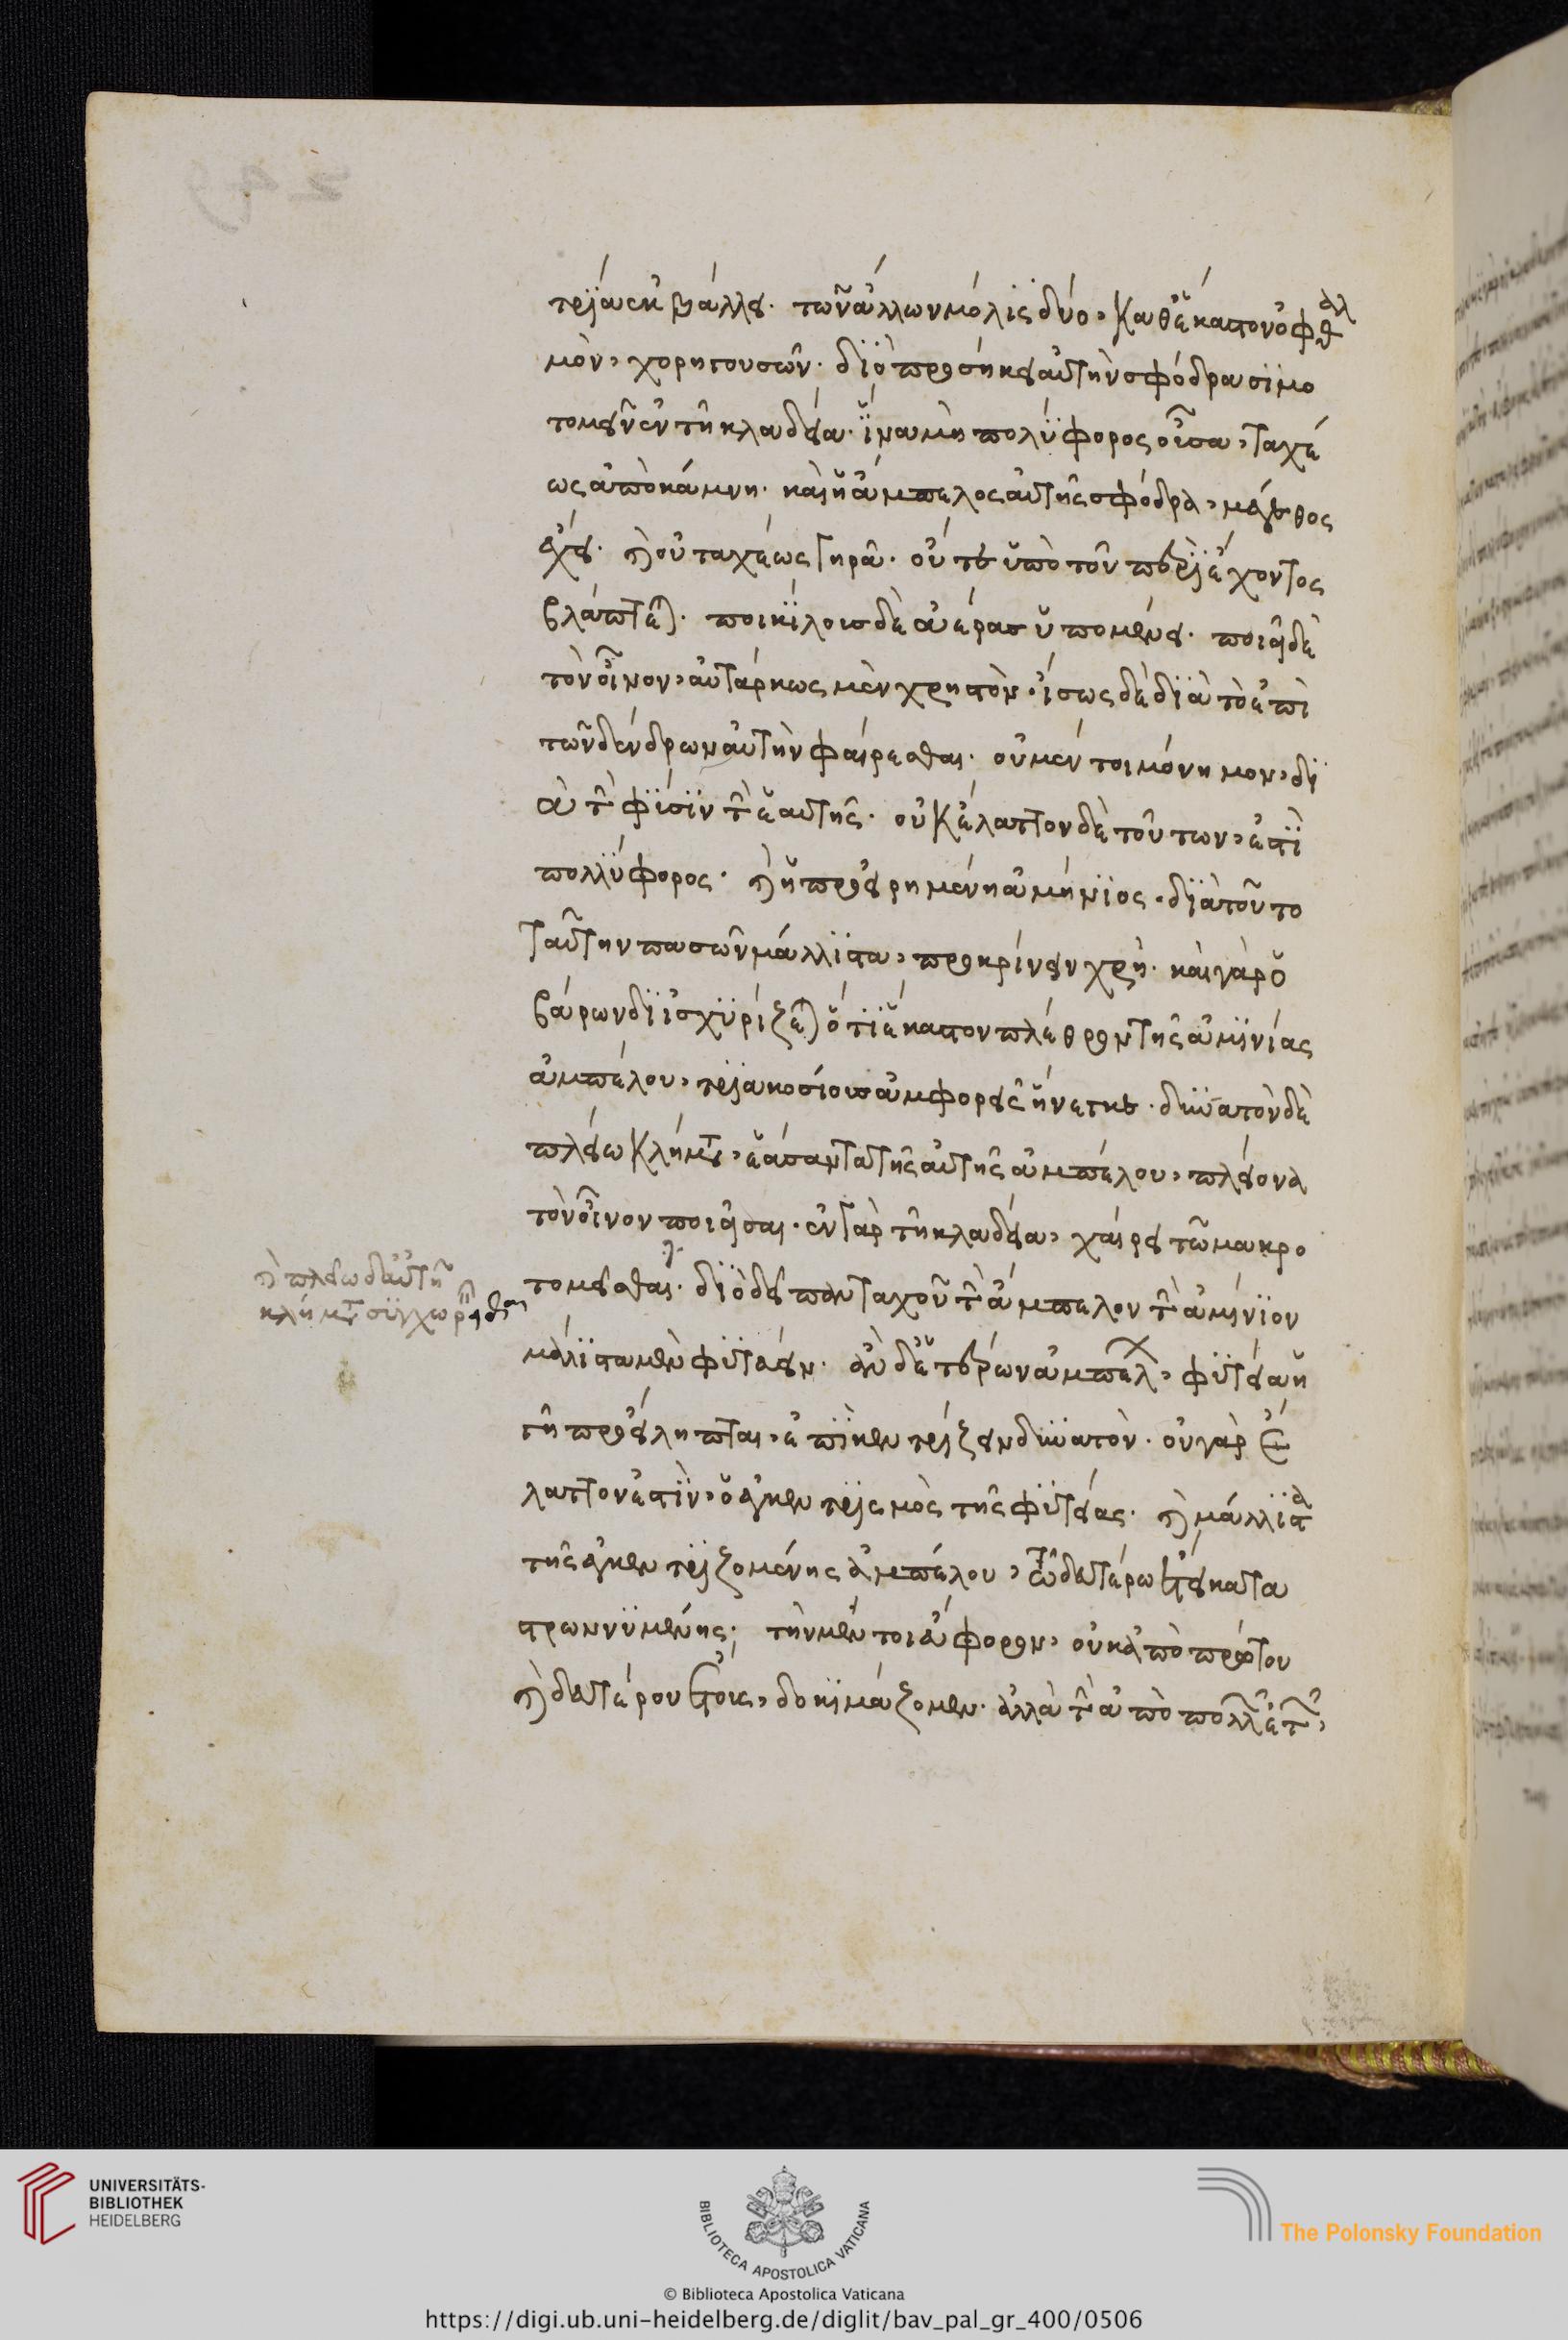 τρία ἐκβάλλει· τῶν ἄλλων μόλις δύο, καθ' ἕκαστον ὀφθαλ
μὸν, χορηγουσῶν· διὸ προσήκει αὐτὴν σφόδρα σιμο
τομεῖν ἐν τῇ κλαδεία· ἵνα μὴ πολυφορος οὖσα, ταχέ
ως ἀποκάμνη· καὶ ἡ ἄμπελος αὐτῆς σφόδρα, μέγεθος
ἔχει· καὶ οὐ ταχέως γηρᾶ· οὔτε ὑπὸ τοῦ περιέχοντος
βλάπτεται· ποικίλους δὲ ἀέρας ὑπομένει· ποιεῖ δὲ
τὸν οἶνον, αὐτάρκως μὲν χρηστὸν· ἴσως δὲ διὰ τὸ ἐπὶ
τῶν δένδρων αὐτὴν φαίρεσθαι· οὐ μέν τοι μόνιμον, δι
ὰ τὴν φύσιν τὴν ἑαυτῆς· οὐκ ἔλαττον δὲ τούτων, ἐστὶ
πολλύφορος· καὶ ἡ προειρημένη ἀμήνιος· διὰ τοῦτο
ταύτην πασῶν μάλλιστα, προκρίνειν χρὴ· καὶ γὰρ ὁ
βάρων διϊσχυρίζεται ὅτι ἕκαστον πλέθρον τῆς ἀμινίας
ἀμπέλου, τριακοσίους ἀμφορεῖς ἤνεγκε· δυνατὸν δὲ
πλείω κλήματα, ἐάσαντα τῆς αὐτῆς ἀμπέλου, πλείονα
τὸν οἶνον ποιῆσαι· ἐν γὰρ τῇ κλαδεία, χαίρει τῶ μακρο
τομεῖσθαι· διὸ δεῖ πανταχοῦ τὴν ἄμπελον τὴν ἀμίνιον
μάλιστα μὲν φυτεύειν· ἂν δὲ ἑτέρων ἀμπέλων, φυτεία ἡ
γῆ προείληπται, ἐπὶ κεντρίζειν δυνατὸν· οὐ γὰρ ἔ
λαττον ἐστὶν, ὁ ἐγκεντρισμὸς τῆς φυτείας· καὶ μάλλιστα
τῆς ἐγκεντριζομένης ἀμπέλου, τῶ δευτέρω ἔτει κατα
στρωννυμένης· τὴν μέν τοι ἄφορον, οὐκ ἀπὸ πρώτου
καὶ δευτέρου ἔτους, δοκιμάζομεν· ἀλλὰ τὴν ἀπὸ πολλῶν ἐτῶν,
καὶ πλείω δ' αὐτῆ
κλήματα συγχωρεῖσθαι
UNIVERSITÄTS-
BIBLIOTHEK
HEIDELBERG
BIBLIOTECA APOSTOLICA VATICANA
© Biblioteca Apostolica Vaticana
The Polonsky Foundation
https://digi.ub.uni-heidelberg.de/diglit/bav_pal_gr_400/0506